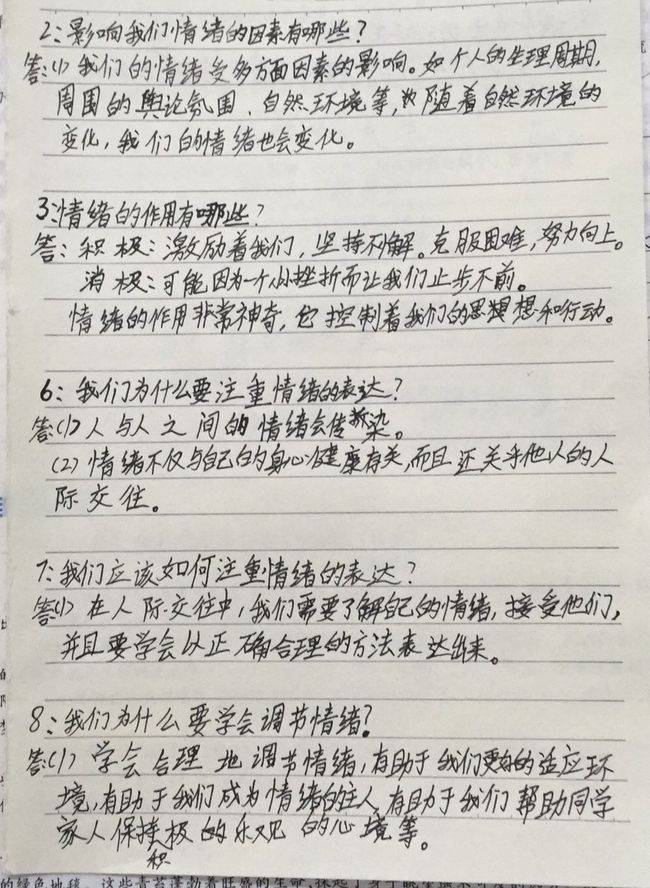 2:影响我们情绪的因素有哪些?
答:(1)我们的情绪受多方面因素的影响。如个人的生理周期,
周围的舆论氛围、自然环境等,随着自然环境的
变化,我们的情绪也会变化。
3:情绪的作用有哪些?
答:积极:激励着我们,坚持不懈。克服困难,努力向上。
消极:可能因为一个小挫折而让我们止步不前。
情绪的作用非常神奇,它控制着我们的思想和行动。
6:我们为什么要注重情绪的表达?
答:(1)人与人之间的情绪会传染。
(2)情绪不仅与自己的身心健康有关,而且还关乎他人的人
际交往。
7:我们应该如何注重情绪的表达?
答:(1)在人际交往中,我们需要了解自己的情绪,接受他们,
并且要学会以正确合理的方法表达出来。
8:我们为什么要学会调节情绪?
答:(1)学会合理地调节情绪,有助于我们更好的适应环
境,有助于我们成为情绪的主人,有助于我们帮助同学
家人保持积极的乐观的心境等。
的绿色地毯。这些青苔蓬勃着旺盛的生命,